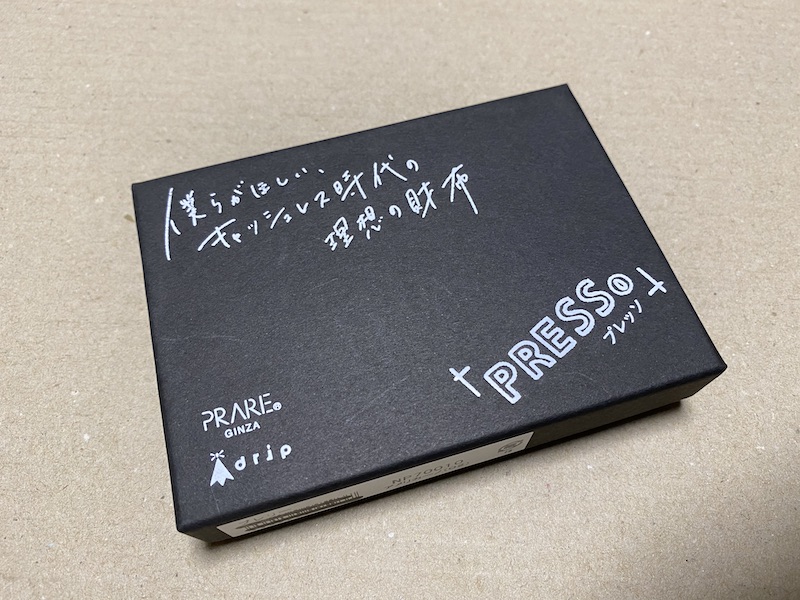 僕らがほしい、
キャッシュレス時代の
理想の財布
PRESSo
プレッソ
PRARE®
GINZA
drip